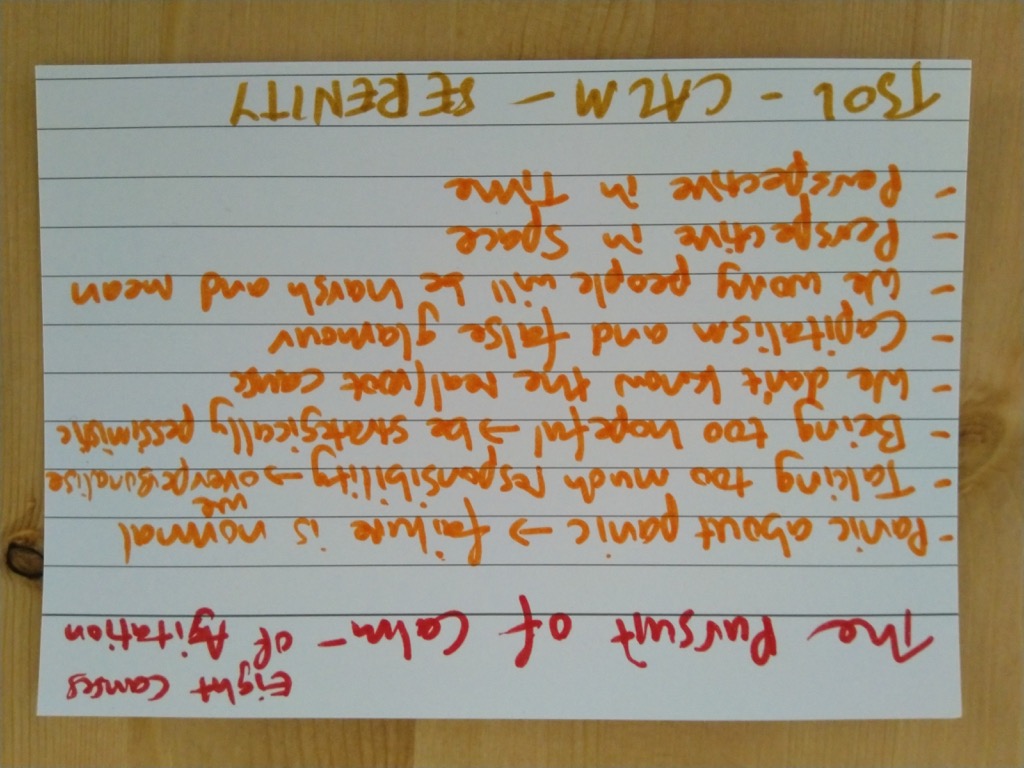 The Pursuit of Calm - Eight Causes of Agitation
- Panic about panic → failure is normal
- Taking too much responsibility → we overpersonalise
- Being too hopeful → be strategically pessimistic
- We don't know the real/root cause
- Capitalism and false glamour
- We worry people will be harsh and mean
- Perspective in Space
- Perspective in Time
TSOL - CALM - SERENITY